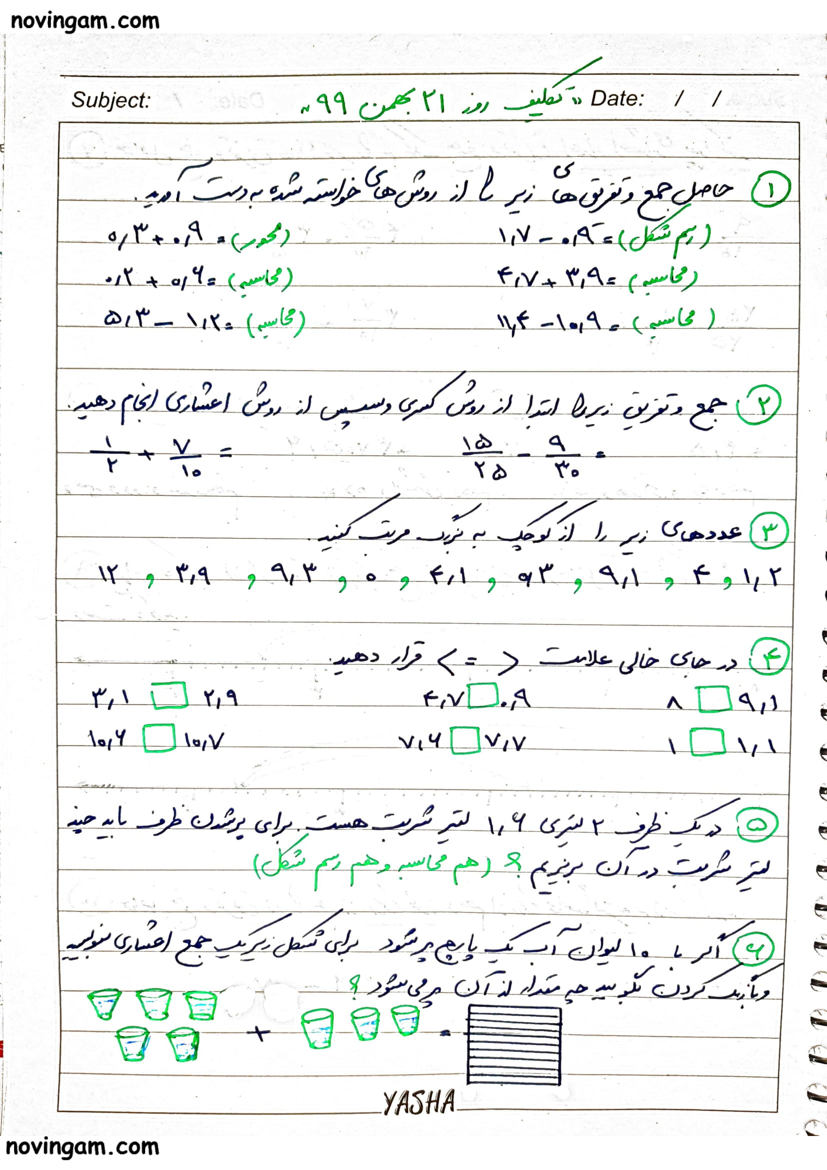 novingam.com
Subject: " تکلیف روز ۲۱ بهمن ۹۹ " Date: / /
۱ حاصل جمع و تفریق های زیر را از روش های خواسته شده به دست آورید.
۱٫۷ − ۰٫۹ = (رسم شکل) ۰٫۳ + ۰٫۹ = (محور)
۴٫۷ + ۳٫۹ = (محاسبه) ۰٫۲ + ۰٫۶ = (محاسبه)
۱۱٫۴ − ۱۰٫۹ = (محاسبه) ۵٫۳ − ۱٫۲ = (محاسبه)
۲ جمع و تفریق زیر را ابتدا از روش کسری و سپس از روش اعشاری انجام دهید.
۱۵/۲۵ − ۹/۳۰ = ۱/۲ + ۷/۱۰ =
۳ عددهای زیر را از کوچک به بزرگ مرتب کنید.
۱٫۲ و ۴ و ۹٫۱ و ۰٫۳ و ۴٫۱ و ۰ و ۹٫۳ و ۳٫۹ و ۱۲
۴ در جای خالی علامت < = > قرار دهید.
۳٫۱ □ ۲٫۹ ۴٫۷ □ ۰٫۹ ۸ □ ۹٫۱
۱۰٫۶ □ ۱۰٫۷ ۷٫۶ □ ۷٫۷ ۱ □ ۱٫۱
۵ در یک ظرف ۲ لیتری ۱٫۶ لیتر شربت هست. برای پر شدن ظرف باید چند
لیتر شربت در آن بریزیم؟ (هم محاسبه و هم رسم شکل)
۶ اگر با ۱۰ لیوان آب یک پارچ پر شود برای شکل زیر یک جمع اعشاری بنویسید
و با رنگ کردن بگویید چه مقدار از آن پر می شود؟
+ =
YASHA
novingam.com